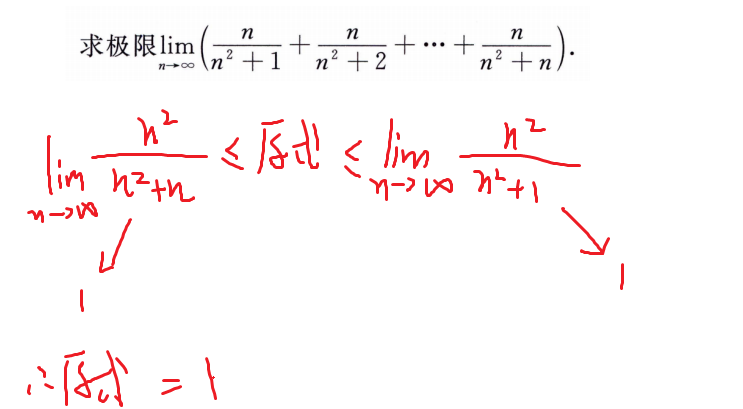 求极限lim_{n→∞}(n/(n²+1) + n/(n²+2) + ⋯ + n/(n²+n)).
lim_{n→∞} n²/(n²+n) ≤ 原式 ≤ lim_{n→∞} n²/(n²+1)
↙ ↘
1 1
∴原式 = 1